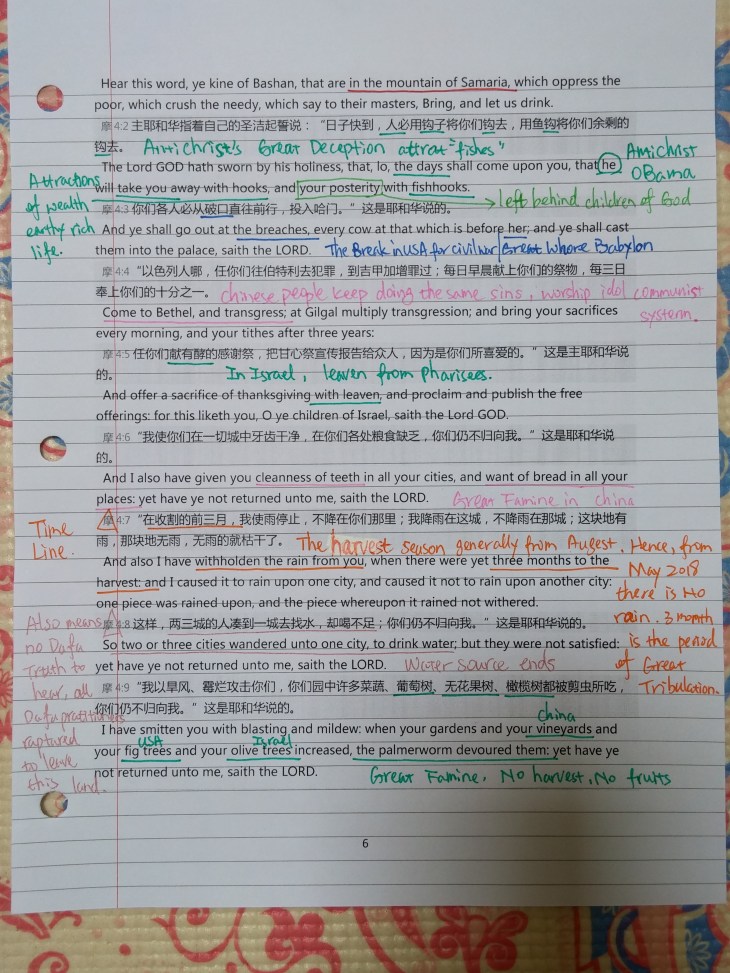 Hear this word, ye kine of Bashan, that are in the mountain of Samaria, which oppress the
poor, which crush the needy, which say to their masters, Bring, and let us drink.
摩 4:2 主耶和华指着自己的圣洁起誓说：“日子快到，人必用钩子将你们钩去，用鱼钩将你们余剩的
钩去。 Antichrist's Great Deception attrat "fishes"
The Lord GOD hath sworn by his holiness, that, lo, the days shall come upon you, that he
Antichrist
OBama
will take you away with hooks, and your posterity with fishhooks.
→ left behind children of God
Attractions
of wealth
earthy rich
life.
摩 4:3 你们各人必从破口直往前行，投入哈门。”这是耶和华说的。
And ye shall go out at the breaches, every cow at that which is before her; and ye shall cast
them into the palace, saith the LORD. The Break in USA for civil war/Great Whore Babylon
摩 4:4 “以色列人哪，任你们往伯特利去犯罪，到吉甲加增罪过；每日早晨献上你们的祭物，每三日
奉上你们的十分之一。 chinese people keep doing the same sins, worship idol communist
system.
Come to Bethel, and transgress; at Gilgal multiply transgression; and bring your sacrifices
every morning, and your tithes after three years:
摩 4:5 任你们献有酵的感谢祭，把甘心祭宣传报告给众人，因为是你们所喜爱的。”这是主耶和华说
的。 In Israel, leaven from pharisees.
And offer a sacrifice of thanksgiving with leaven, and proclaim and publish the free
offerings: for this liketh you, O ye children of Israel, saith the Lord GOD.
摩 4:6 “我使你们在一切城中牙齿干净，在你们各处粮食缺乏，你们仍不归向我。”这是耶和华说
的。
And I also have given you cleanness of teeth in all your cities, and want of bread in all your
places: yet have ye not returned unto me, saith the LORD. Great Famine in china
Time
Line.
摩 4:7 “在收割的前三月，我使雨停止，不降在你们那里；我降雨在这城，不降雨在那城；这块地有
雨，那块地无雨，无雨的就枯干了。 The harvest season generally from Augest. Hence, from
May 2018
there is no
rain. 3 month
is the period
of Great
Tribulation.
And also I have withholden the rain from you, when there were yet three months to the
harvest: and I caused it to rain upon one city, and caused it not to rain upon another city:
one piece was rained upon, and the piece whereupon it rained not withered.
Also means
no Dafa
Truth to
hear, all
Dafa practitioners
raptured
to leave
this land.
摩 4:8 这样，两三城的人凑到一城去找水，却喝不足；你们仍不归向我。”这是耶和华说的。
So two or three cities wandered unto one city, to drink water; but they were not satisfied:
yet have ye not returned unto me, saith the LORD. Water source ends
摩 4:9 “我以旱风、霉烂攻击你们，你们园中许多菜蔬、葡萄树、无花果树、橄榄树都被剪虫所吃，
你们仍不归向我。”这是耶和华说的。
china
I have smitten you with blasting and mildew: when your gardens and your vineyards and
USA Israel
your fig trees and your olive trees increased, the palmerworm devoured them: yet have ye
not returned unto me, saith the LORD. Great Famine. No harvest, No fruits
6